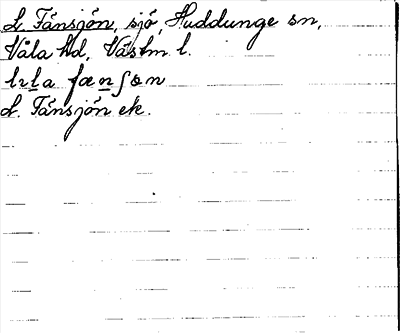 L. Tänsjön, sjö, Huddunge sn,
Våla hd, Västm l.
lɩla fænʃön
L. Tänsjön ek.